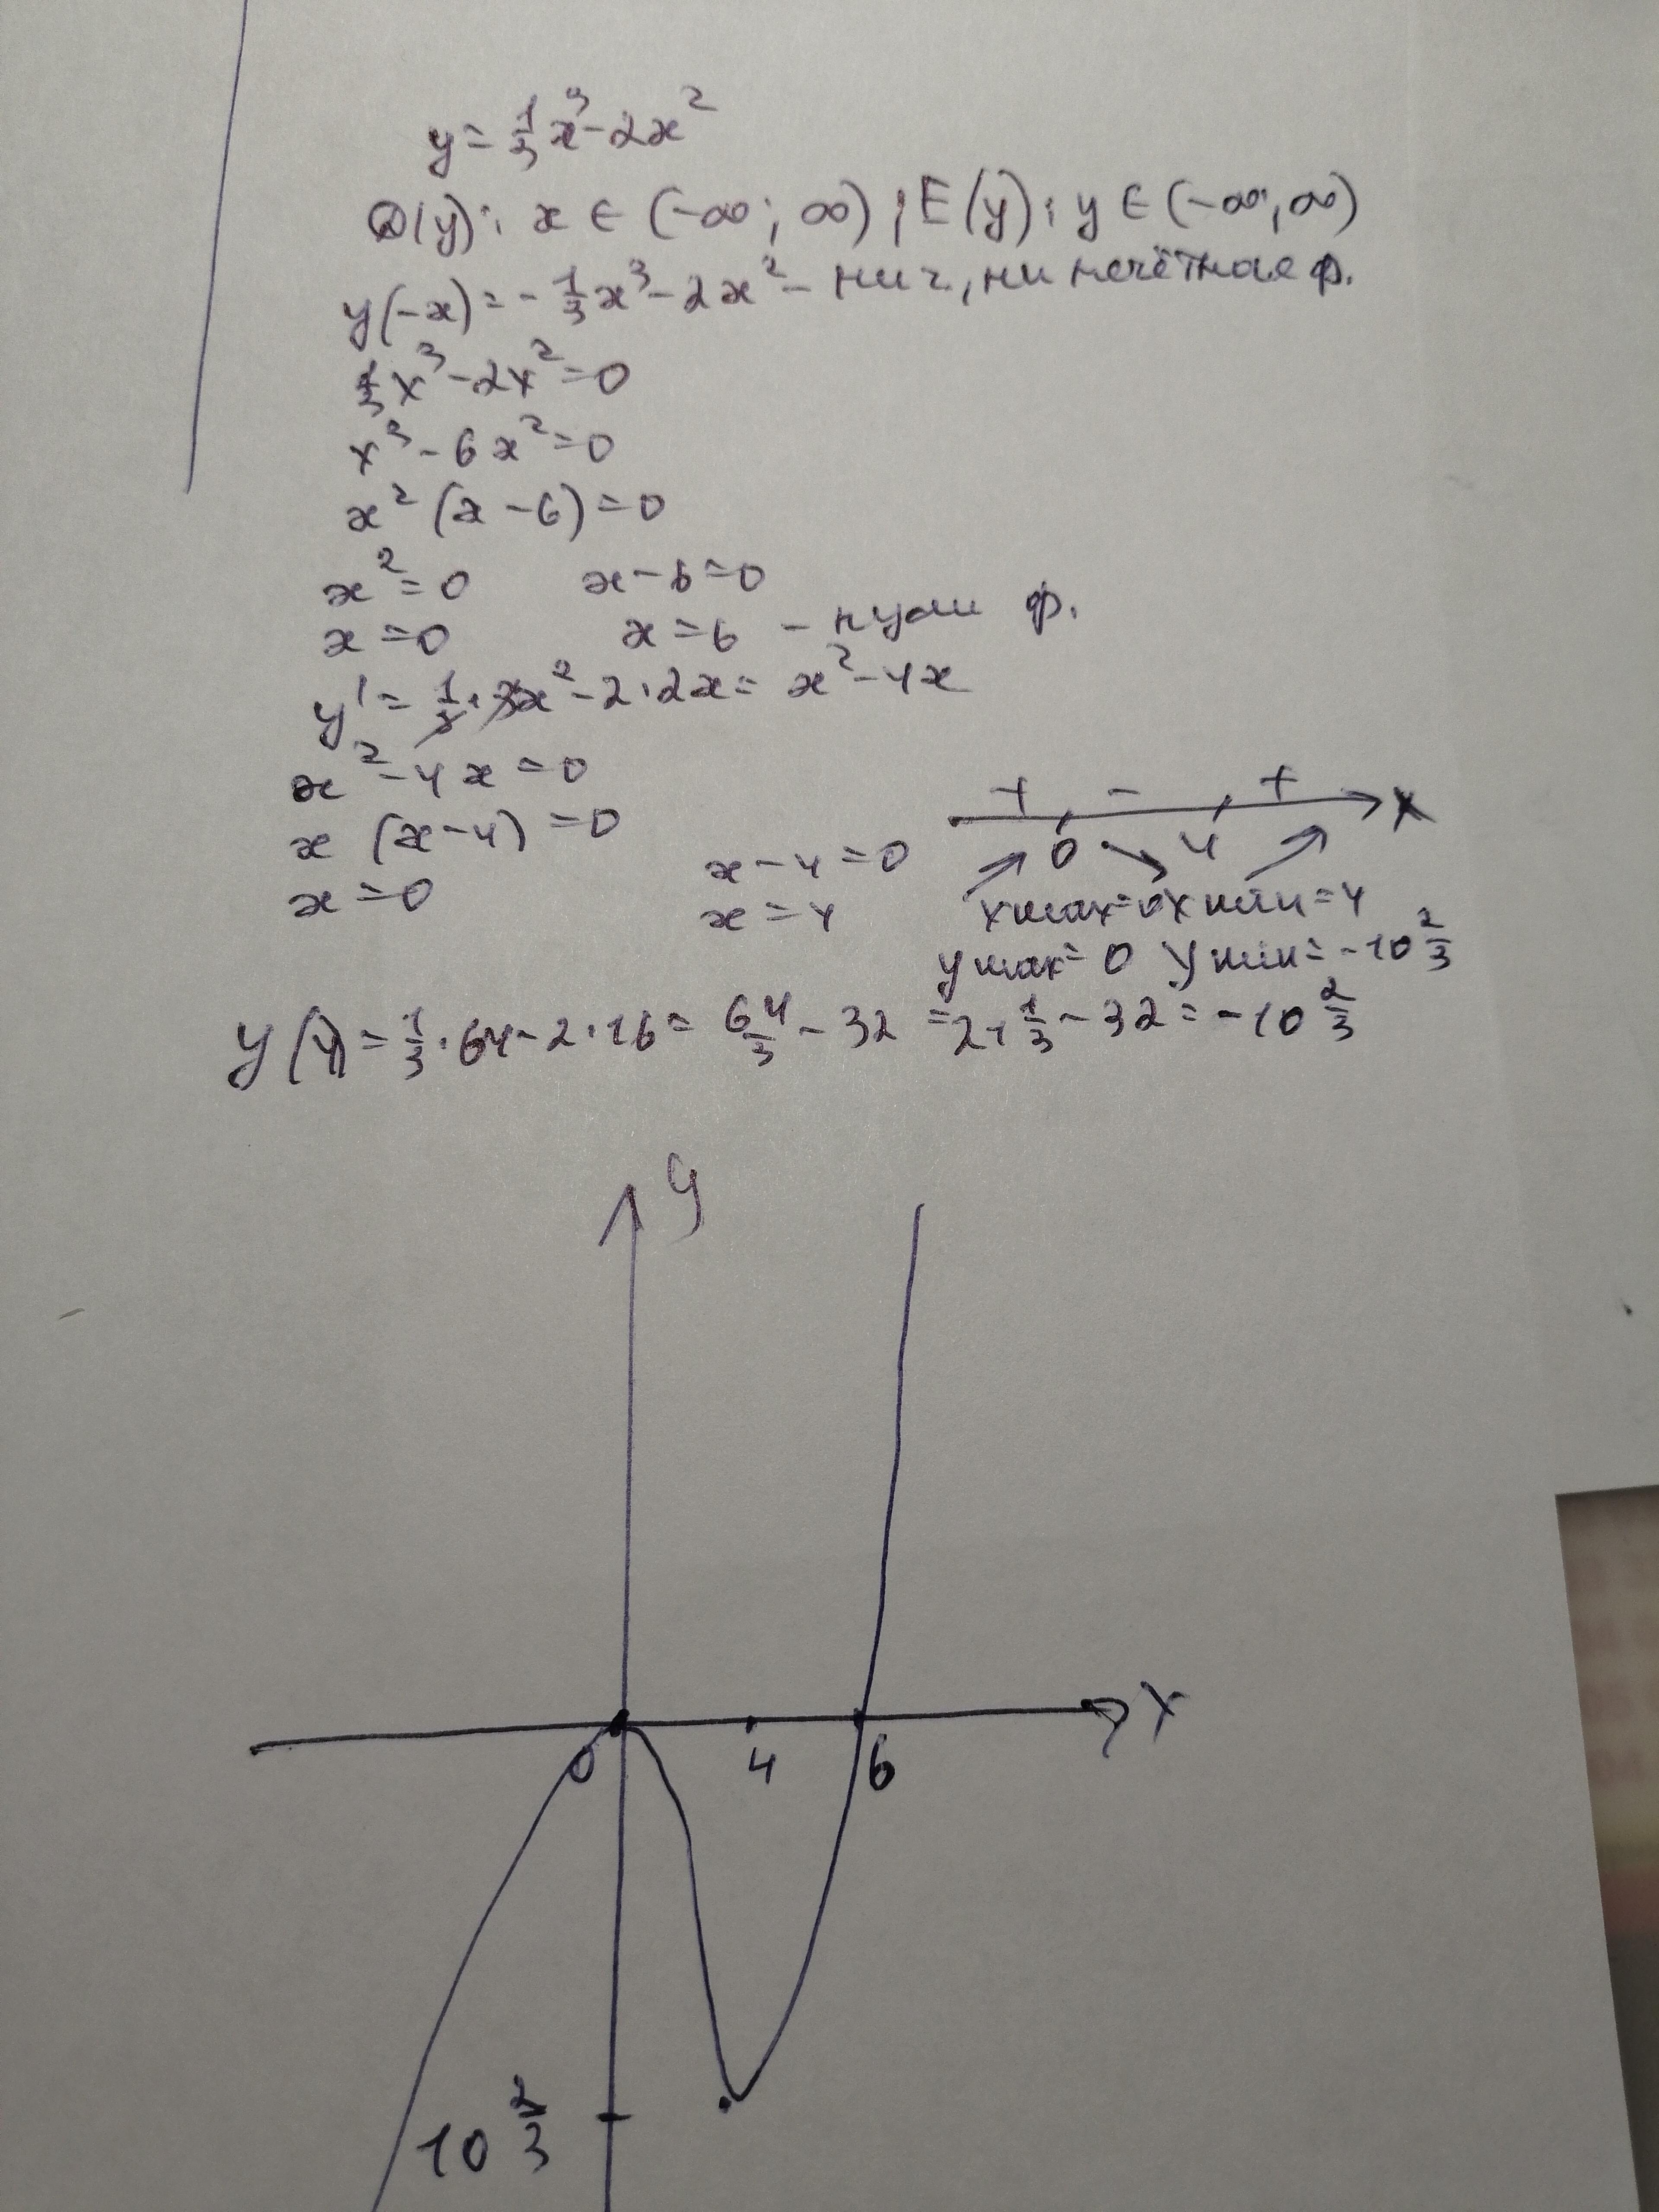 y = 1/3 x³ - 2x²
D(y): x ∈ (-∞; ∞); E(y): y ∈ (-∞; ∞)
y(-x) = -1/3 x³ - 2x² - ни ч, ни нечётная ф.
1/3 x³ - 2x² = 0
x³ - 6x² = 0
x² (x - 6) = 0
x² = 0 x - 6 = 0
x = 0 x = 6 - нули ф.
y' = 1/3 · 3x² - 2 · 2x = x² - 4x
x² - 4x = 0
x (x - 4) = 0
x = 0 x - 4 = 0
x = 4
+ - + x
0 4
x max = 0 x min = 4
y max = 0 y min = -10 2/3
y(4) = 1/3 · 64 - 2 · 16 = 64/3 - 32 = 21 1/3 - 32 = -10 2/3
y
x
0 4 6
10 2/3